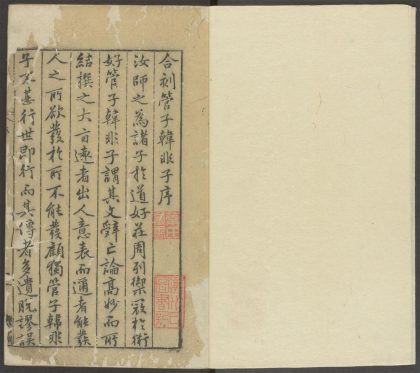 合刻管子韓非子序
汝師之為諸子於道好莊周列禦寇於術
好管子韓非子謂其文辭亡論高妙而所
結撰之大旨遠者出人意表而邇者能發
人之所欲發於所不能發顧獨管子韓非
子不甚行世即行而其傳者多遺脫謬誤